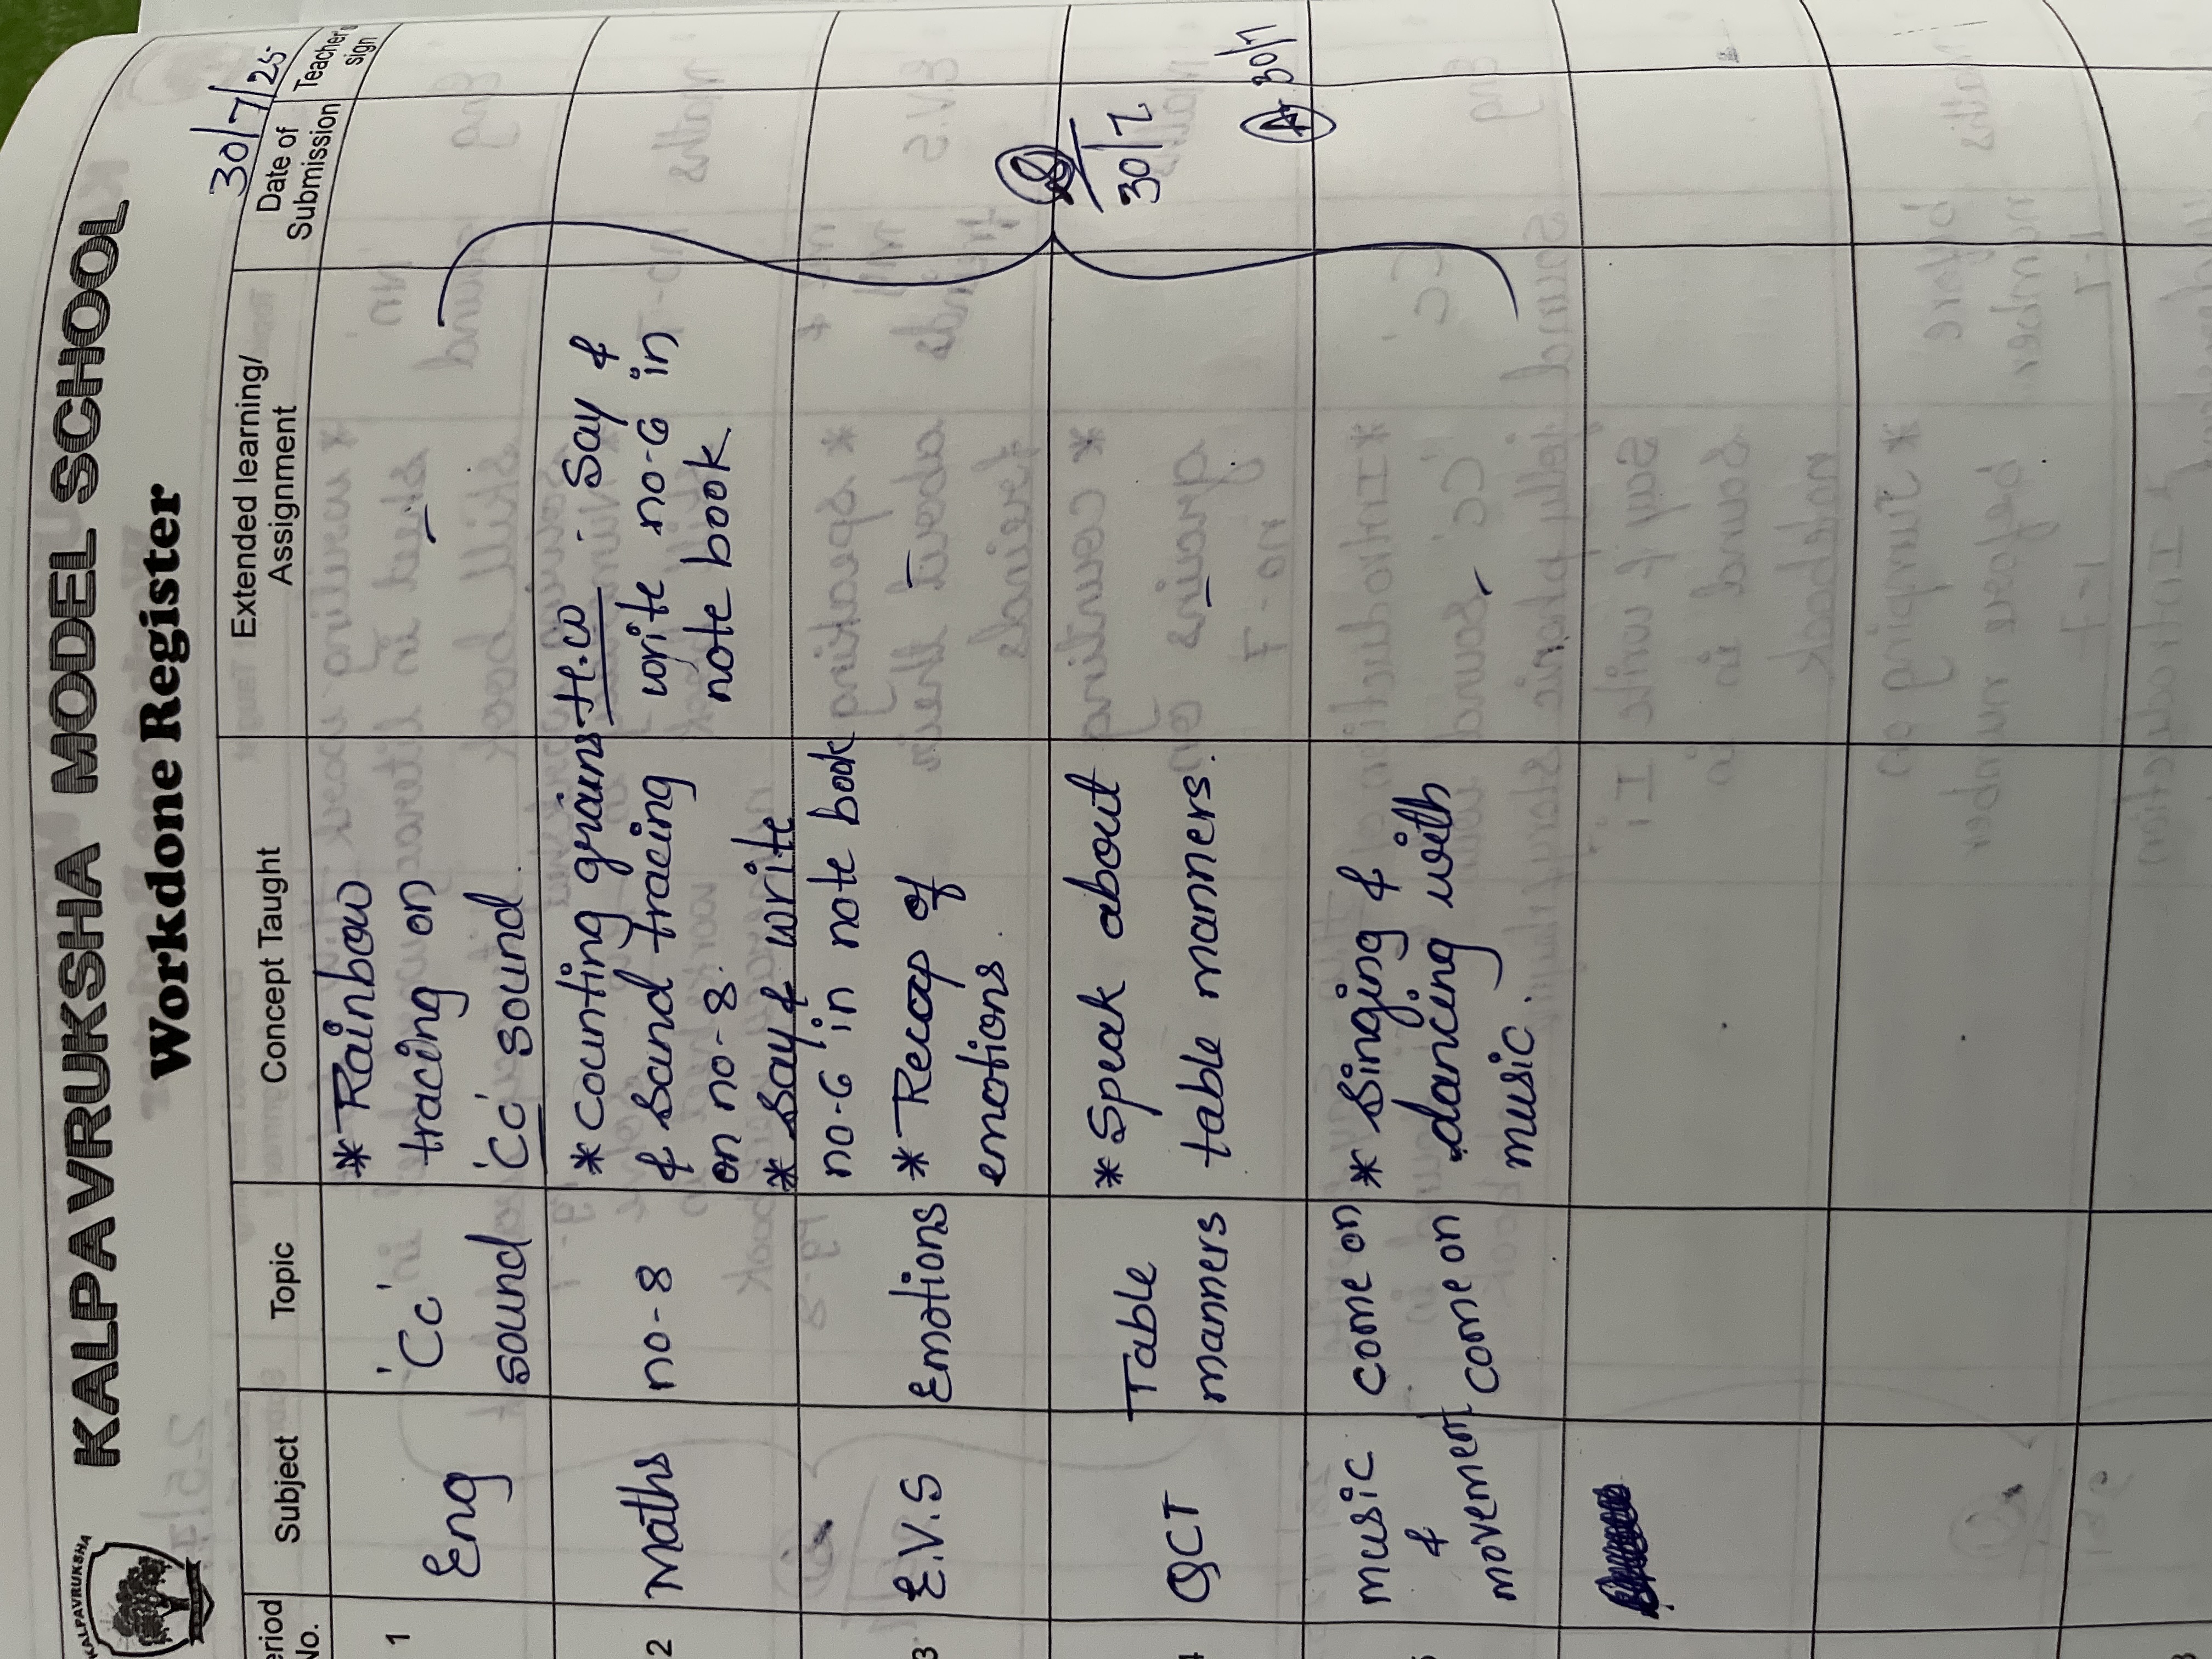 KALPAVRUKSHA
KALPAVRUKSHA MODEL SCHOOL
Workdone Register
30/7/25
Period No.
Subject
Topic
Concept Taught
Extended learning/
Assignment
Date of
Submission
Teacher's
sign
1
Eng
'Cc'
sound
* Rainbow
tracing on
'Cc' sound.
-
2
Maths
no-8
* Counting grains
& Sand tracing
on no-8.
* Say & write
no-6 in note book
H.W Say &
write no-6 in
note book
3
E.V.S
Emotions
* Recap of
emotions
-
4
QCT
Table
manners
* Speak about
table manners.
-
30/7
30/7
5
music
&
movement
come on
come on
* Singing &
dancing with
music.
-